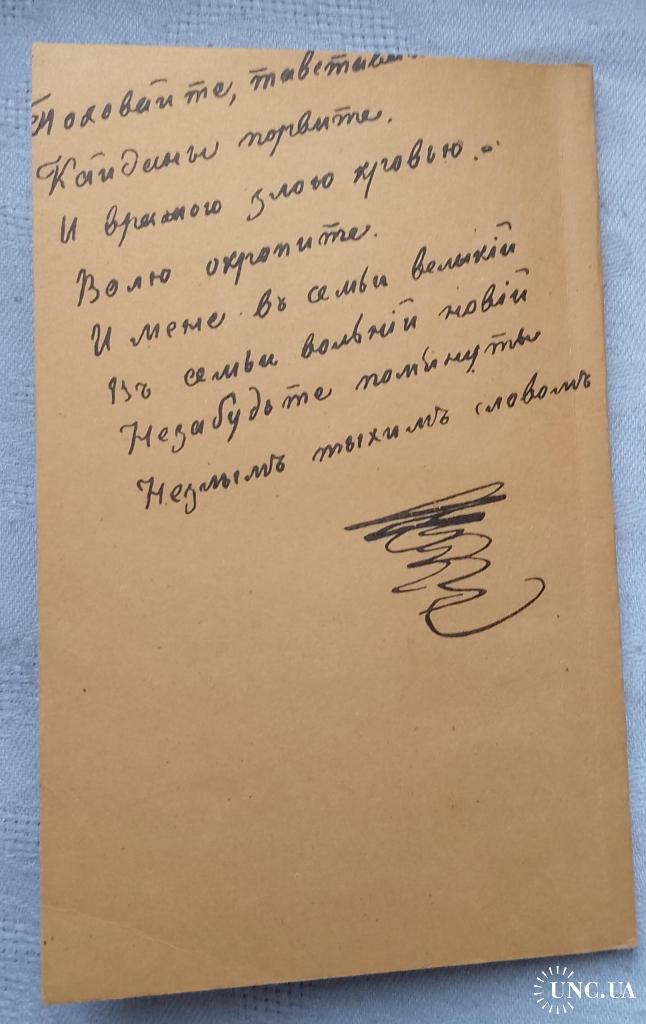 Поховайте, та вставай
Кайданы порвите.
И вражою злою кровью..
Волю окропите.
И мене въ семьи великій
Въ семьи вольній новій
Незабудьте помынуты
Незлымъ тыхимъ словомъ
UNC.UA